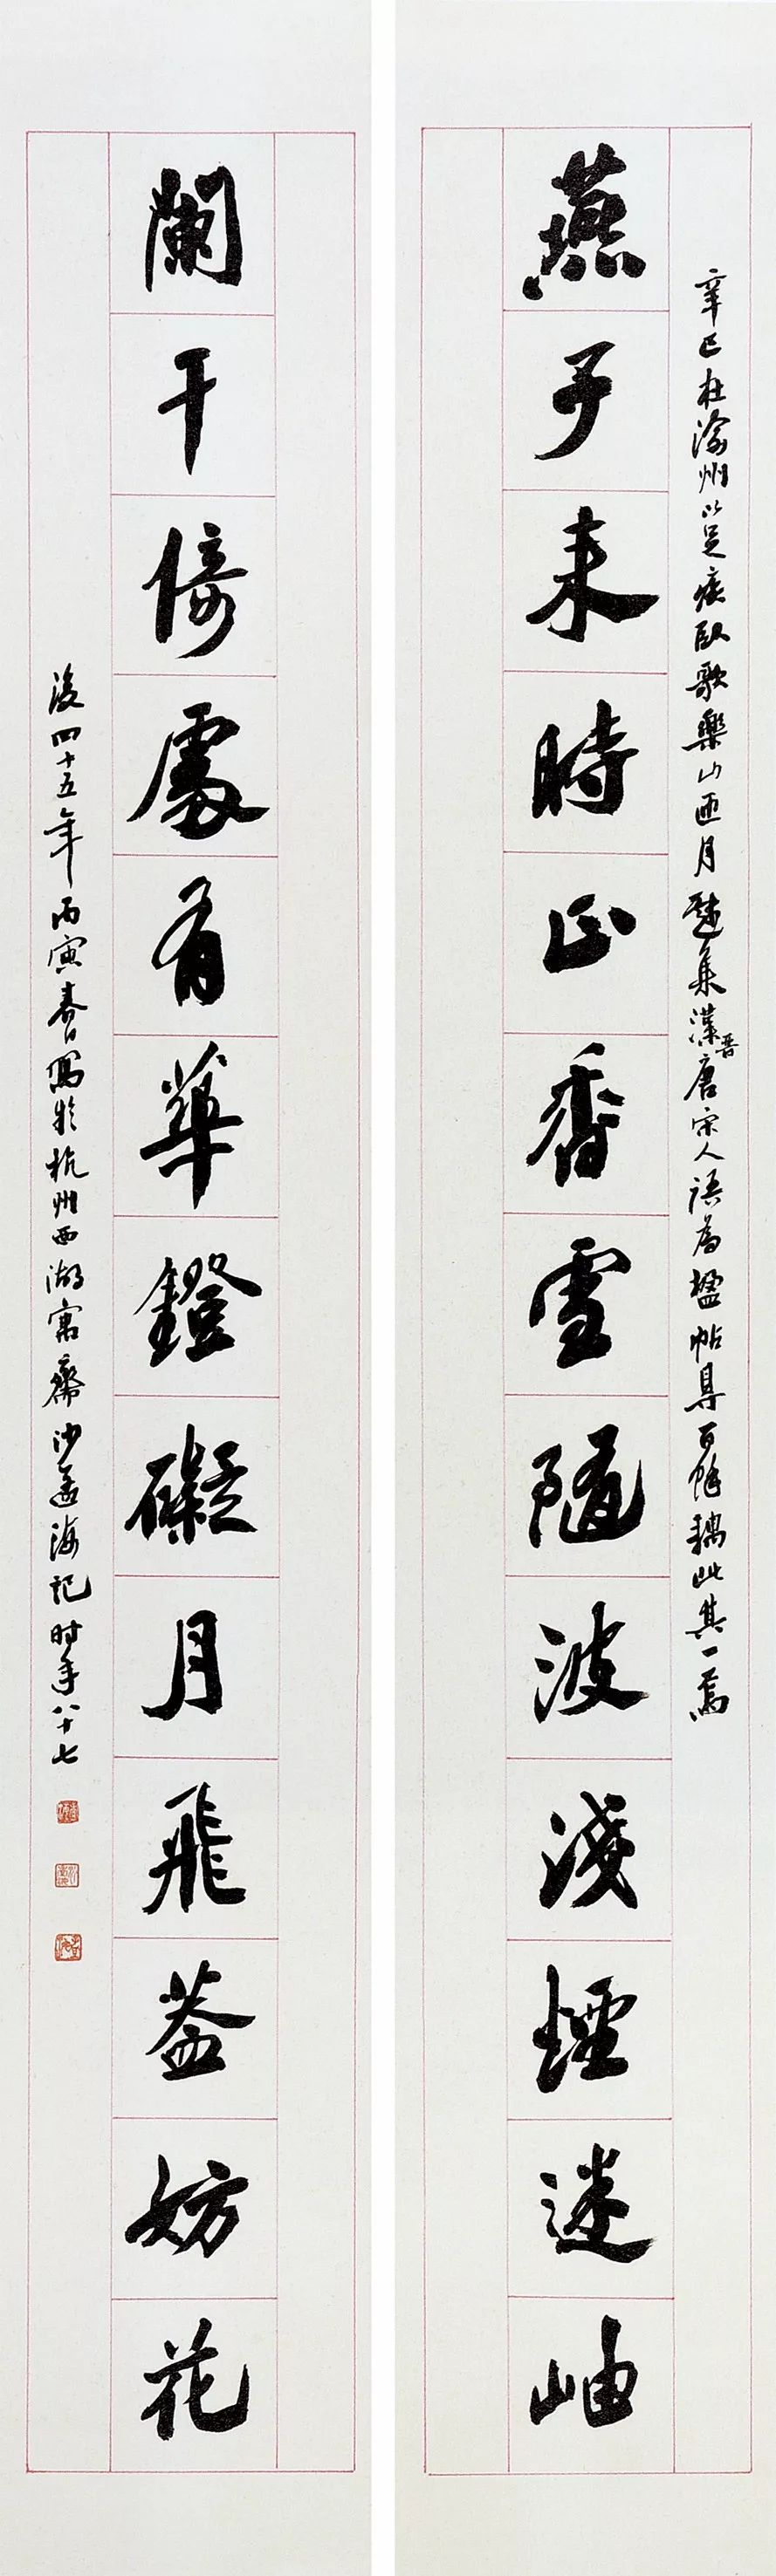 辛巳在渝州以足疾卧歌樂山匝月集漢晋唐宋人語為楹帖百餘耦此其一焉
燕子来時正香雪隨波淺煙迷岫
闌干倚處有華鐙礙月飛蓋妨花
後四十五年丙寅春日寫於杭州西湖寓齋沙孟海記时年八十七